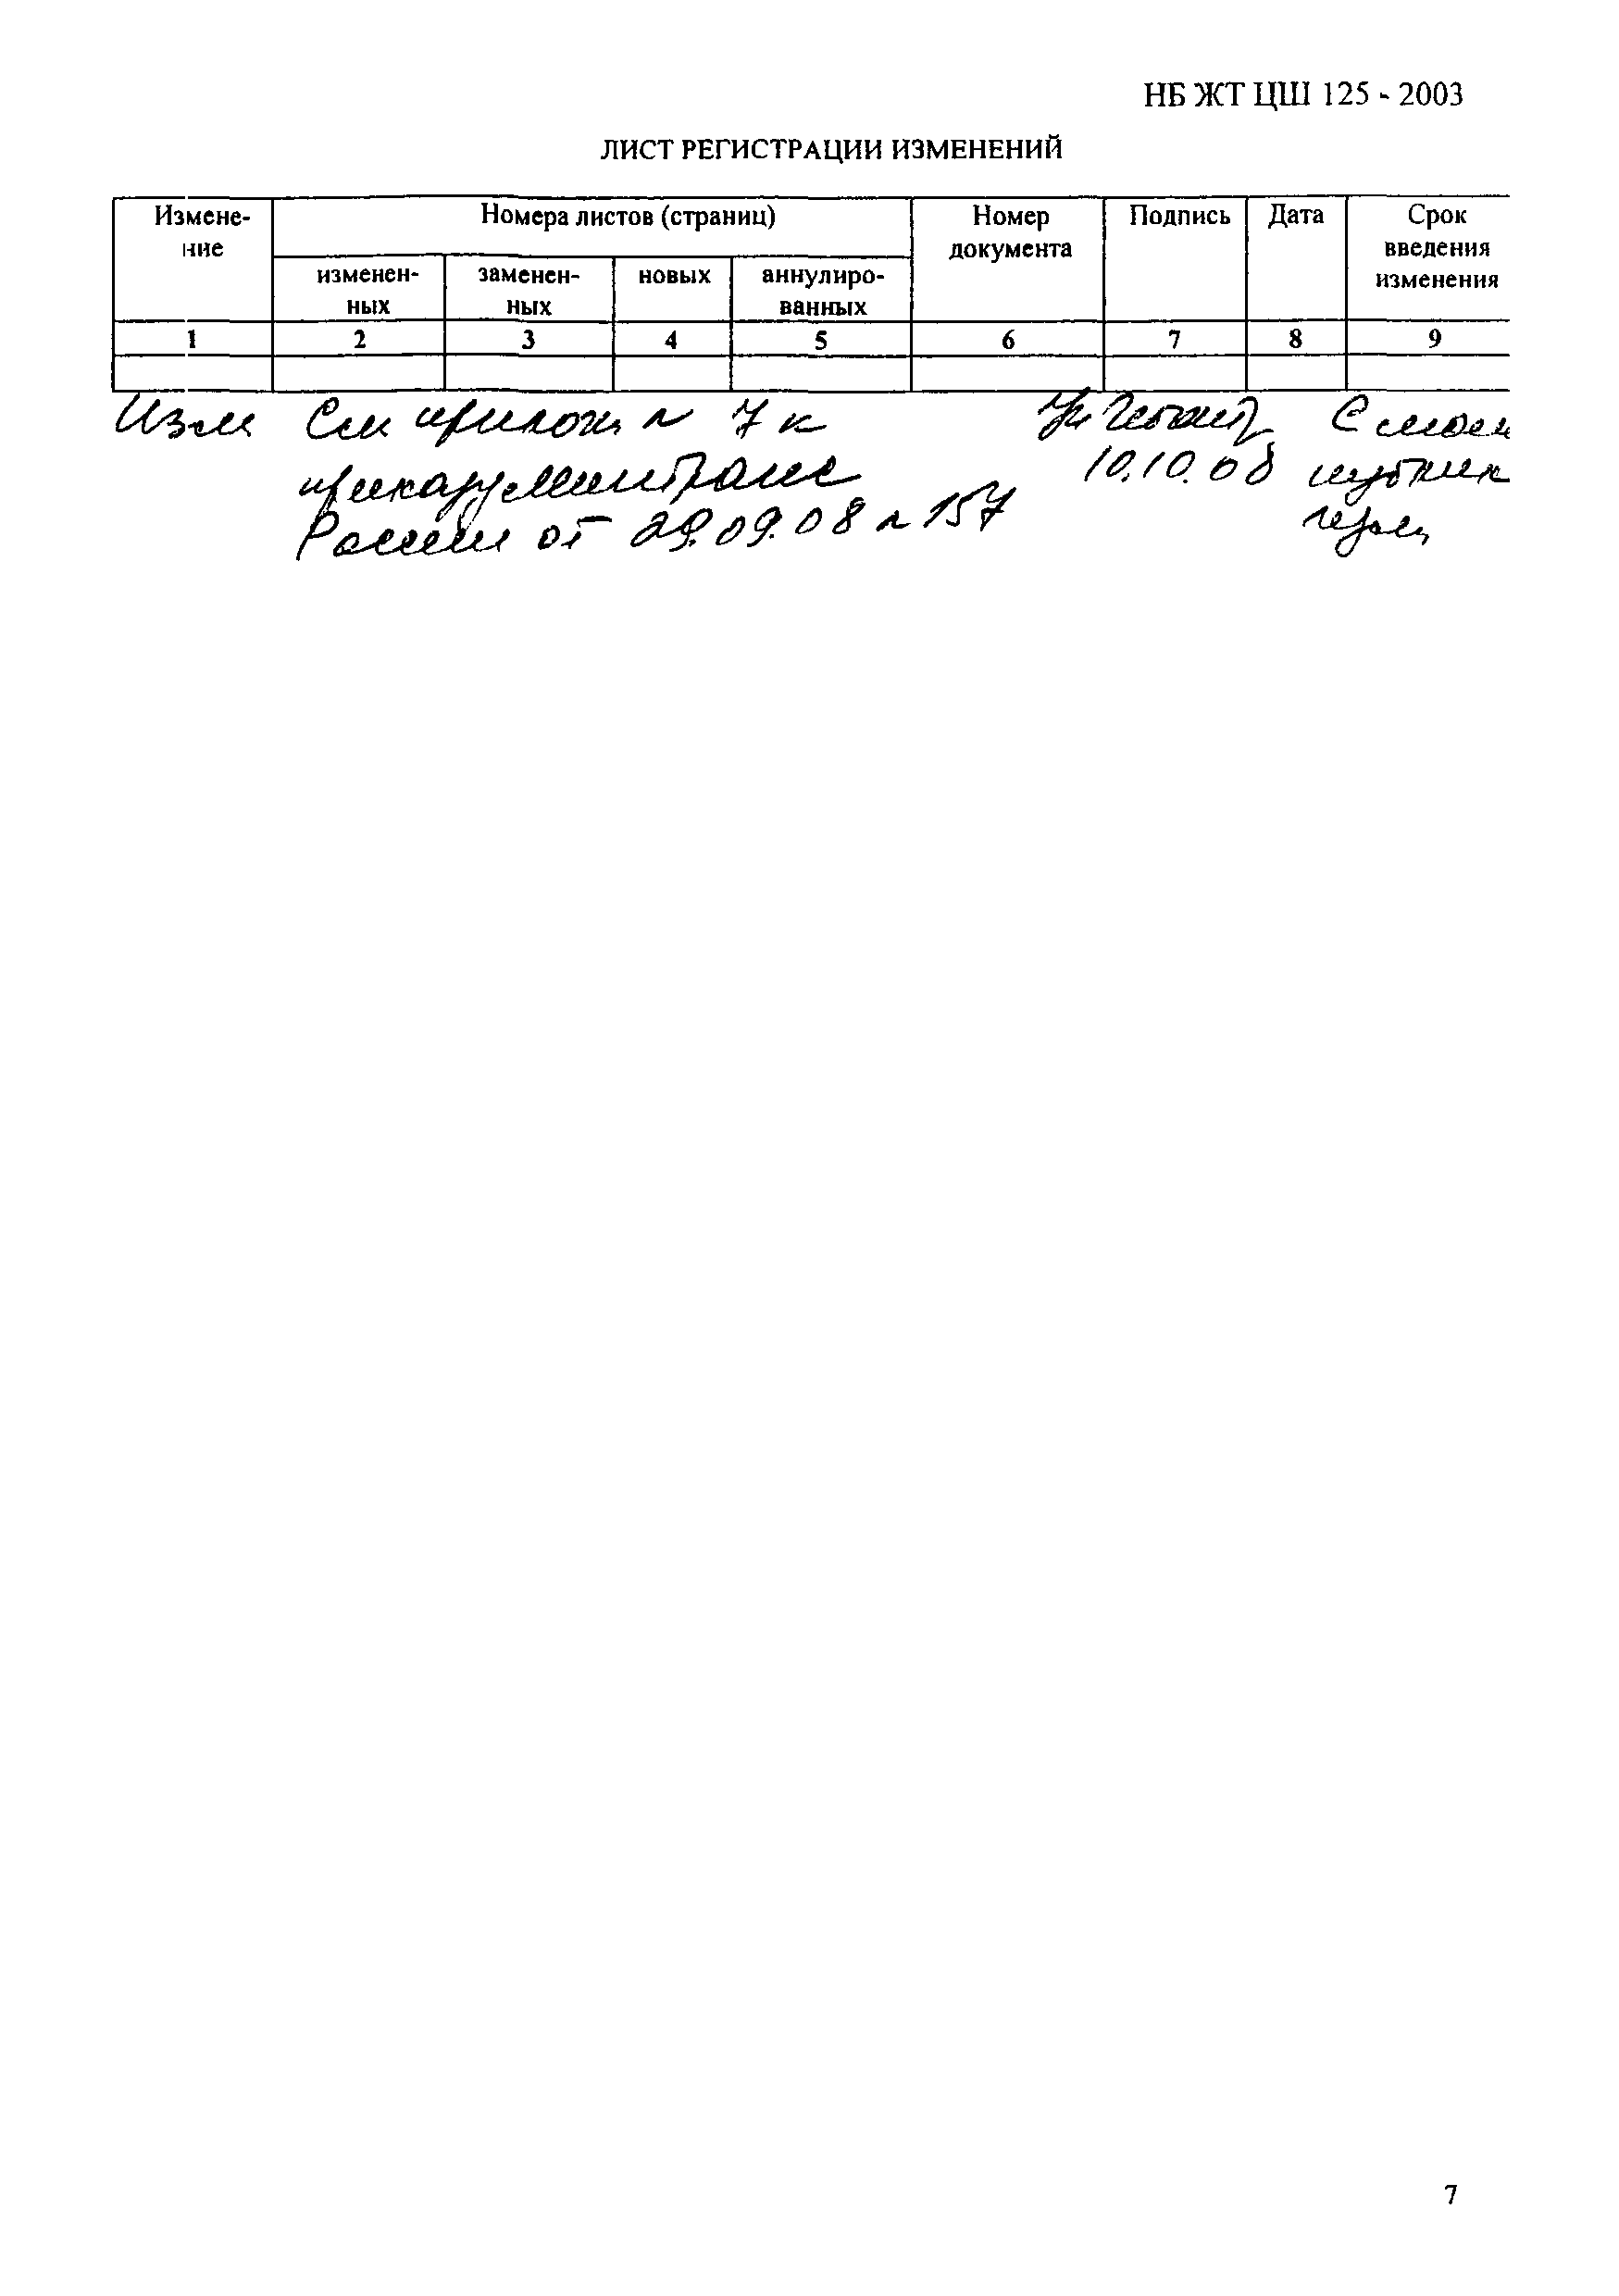 НБ ЖТ ЦШ 125 - 2003
ЛИСТ РЕГИСТРАЦИИ ИЗМЕНЕНИЙ
Измене-
ние
Номера листов (страниц)
Номер
документа
Подпись
Дата
Срок
введения
изменения
изменен-
ных
заменен-
ных
новых
аннулиро-
ванных
1 2 3 4 5 6 7 8 9
Изм См прилож № 7 к
приказу Минтранс
России от 29.09.08 № 157
10.10.08
С мом